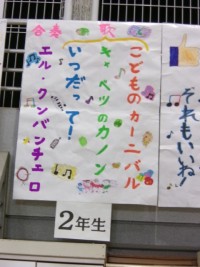 合奏 歌
こどものカーニバル
キャベツのカノン
いつだって!
エル・クンバンチェロ
それもいいね!
2年生